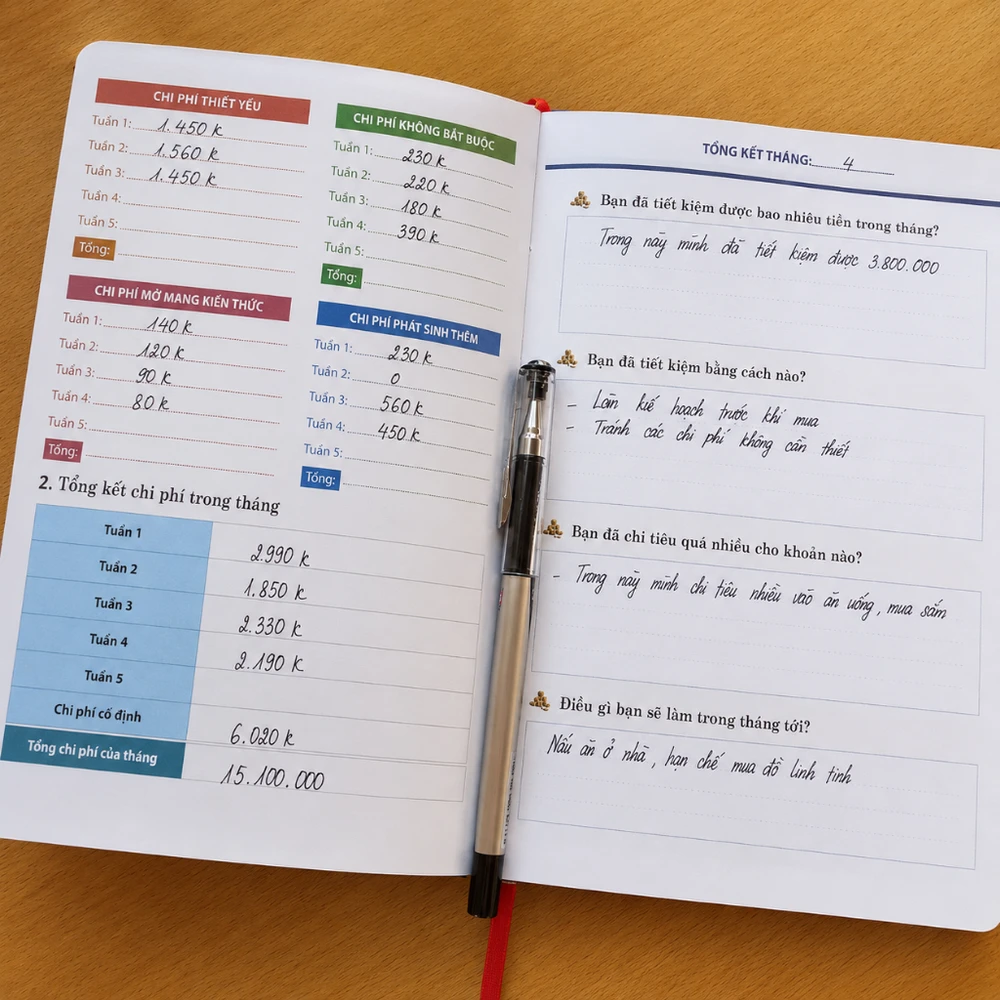 CHI PHÍ THIẾT YẾU
Tuần 1: 1.450 K
Tuần 2: 1.560 K
Tuần 3: 1.450 K
Tuần 4:
Tuần 5:
Tổng:
CHI PHÍ KHÔNG BẮT BUỘC
Tuần 1: 230 K
Tuần 2: 220 K
Tuần 3: 180 K
Tuần 4: 390 K
Tuần 5:
Tổng:
CHI PHÍ MỞ MANG KIẾN THỨC
Tuần 1: 140 K
Tuần 2: 120 K
Tuần 3: 90 K
Tuần 4: 80 K
Tuần 5:
Tổng:
CHI PHÍ PHÁT SINH THÊM
Tuần 1: 230 K
Tuần 2: 0
Tuần 3: 560 K
Tuần 4: 450 K
Tuần 5:
Tổng:
2. Tổng kết chi phí trong tháng
Tuần 1 2.990 K
Tuần 2 1.850 K
Tuần 3 2.330 K
Tuần 4 2.190 K
Tuần 5
Chi phí cố định 6.020 K
Tổng chi phí của tháng 15.100.000
TỔNG KẾT THÁNG: 4
Bạn đã tiết kiệm được bao nhiêu tiền trong tháng?
Trong này mình đã tiết kiệm được 3.800.000
Bạn đã tiết kiệm bằng cách nào?
- Lên kế hoạch trước khi mua
- Tránh các chi phí không cần thiết
Bạn đã chi tiêu quá nhiều cho khoản nào?
- Trong này mình chi tiêu nhiều vào ăn uống, mua sắm
Điều gì bạn sẽ làm trong tháng tới?
Nấu ăn ở nhà, hạn chế mua đồ linh tinh